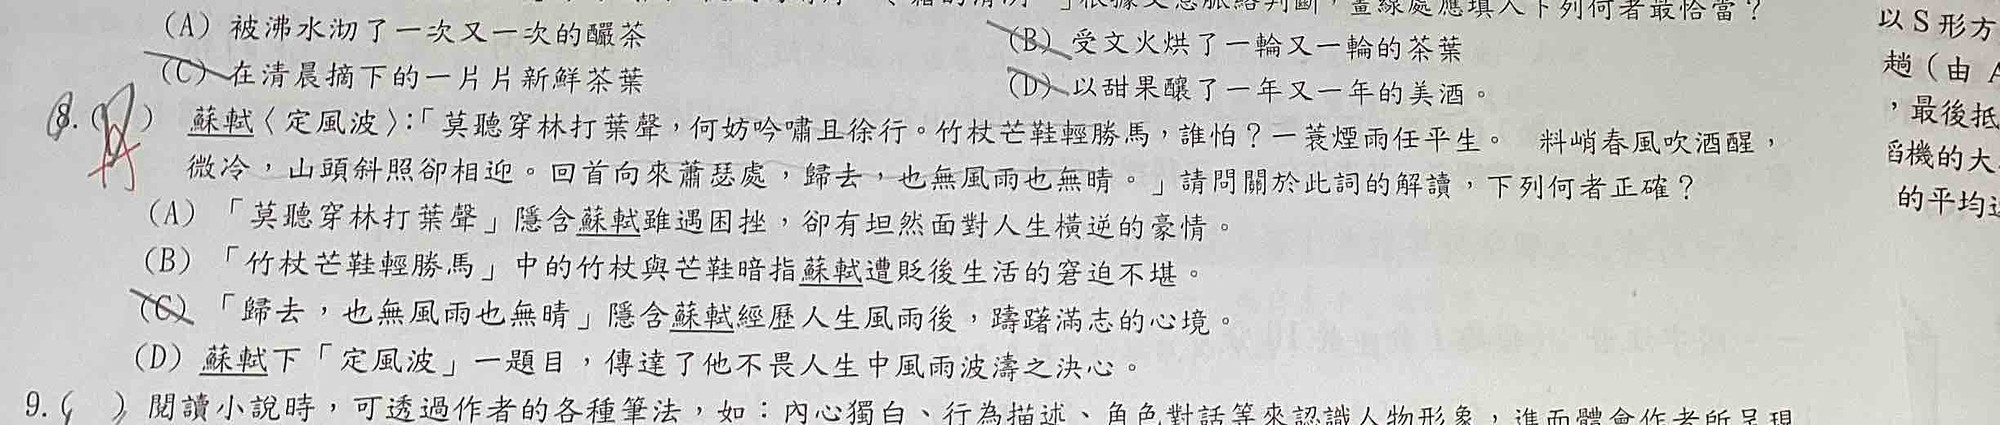 根據文意脈絡判斷，畫線處應填入下列何者最恰當？
(A) 被沸水沏了一次又一次的釅茶
(B) 受文火烘了一輪又一輪的茶葉
(C) 在清晨摘下的一片片新鮮茶葉
(D) 以甜果釀了一年又一年的美酒。
8. ( ) 蘇軾〈定風波〉：「莫聽穿林打葉聲，何妨吟嘯且徐行。竹杖芒鞋輕勝馬，誰怕？一蓑煙雨任平生。 料峭春風吹酒醒，
微冷，山頭斜照卻相迎。回首向來蕭瑟處，歸去，也無風雨也無晴。」請問關於此詞的解讀，下列何者正確？
(A) 「莫聽穿林打葉聲」隱含蘇軾雖遇困挫，卻有坦然面對人生橫逆的豪情。
(B) 「竹杖芒鞋輕勝馬」中的竹杖與芒鞋暗指蘇軾遭貶後生活的窘迫不堪。
(C) 「歸去，也無風雨也無晴」隱含蘇軾經歷人生風雨後，躊躇滿志的心境。
(D) 蘇軾下「定風波」一題目，傳達了他不畏人生中風雨波濤之決心。
9. ( ) 閱讀小說時，可透過作者的各種筆法，如：內心獨白、行為描述、角色對話等來認識人物形象，進而體會作者所呈現
以S形方
趟（由 A
，最後抵
機的大
的平均